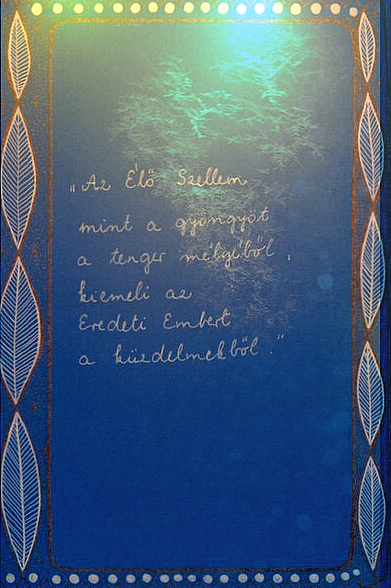 „Az Élő Szellem
mint a gyöngyöt
a tenger mélyéből,
kiemeli az
Eredeti Embert
a küzdelmekből."